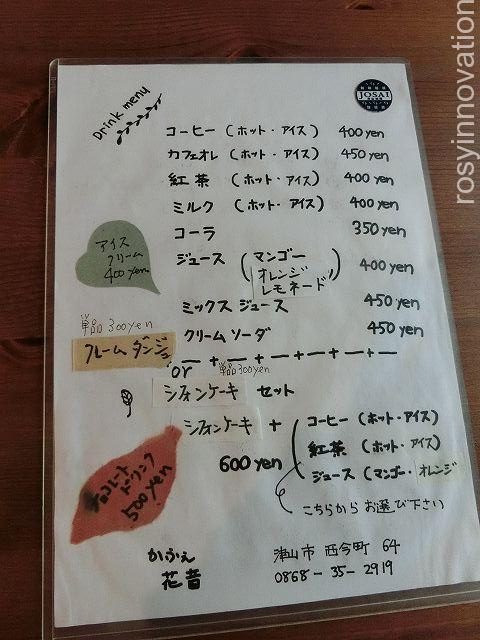 rosyinnovation
Drink menu
JOSAI
コーヒー (ホット・アイス) 400 yen
カフェオレ (ホット・アイス) 450 yen
紅茶 (ホット・アイス) 400 yen
ミルク (ホット・アイス) 400 yen
コーラ 350 yen
ジュース (マンゴー
オレンジ
レモネード) 400 yen
ミックスジュース 450 yen
クリームソーダ 450 yen
アイス
クリーム
400 yen
単品 300yen
クレームダンジュ
or
単品 300yen
シフォンケーキ セット
シフォンケーキ +
600 yen
コーヒー (ホット・アイス)
紅茶 (ホット・アイス)
ジュース (マンゴー・オレンジ
こちらからお選び下さい
チョコレート
ドリンク
500 yen
かふぇ
花音
津山市 西今町 64
0868-35-2919